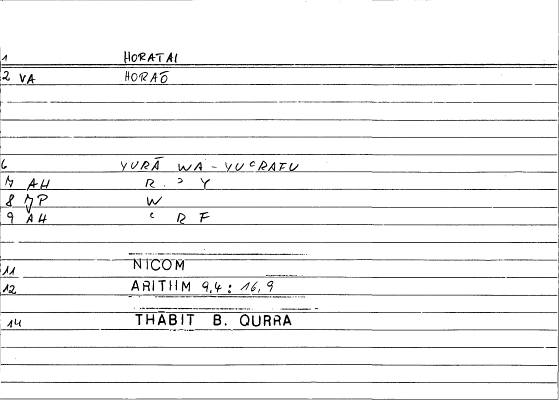 1 HORATAI
2 VA HORAŌ
6 YURĀ WA-YUʿRAFU
7 AH R . ʾ Y
8 JP W
9 AH ʿ R F
11 NICOM
12 ARITHM 9,4 : 16,9
14 THĀBIT B. QURRA